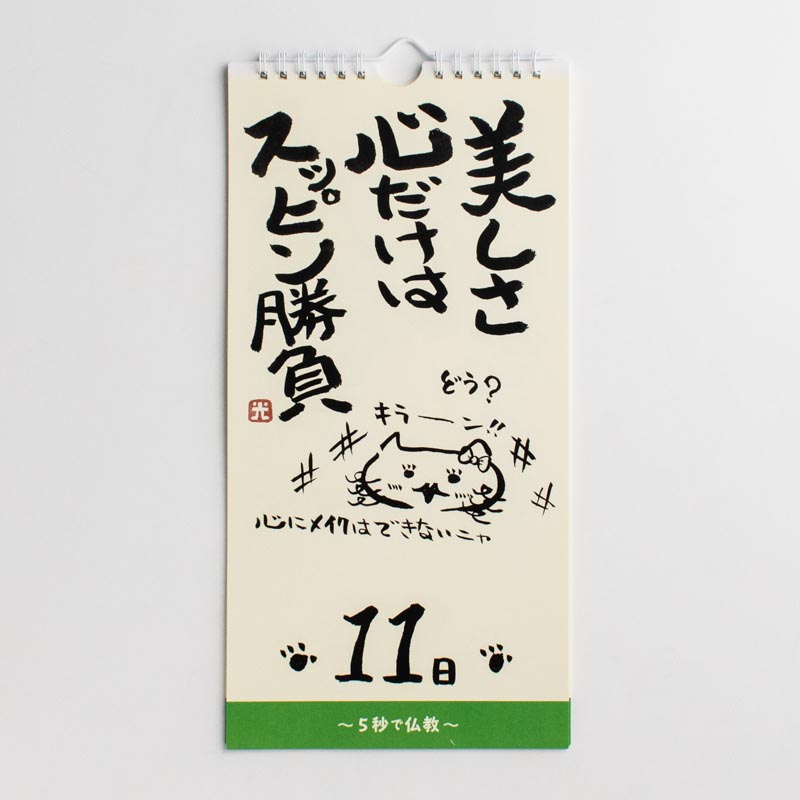 美しさ
心だけは
スッピン勝負
光
どう？
キラーン!!
心にメイクはできないニャ
11日
～5秒で仏教～